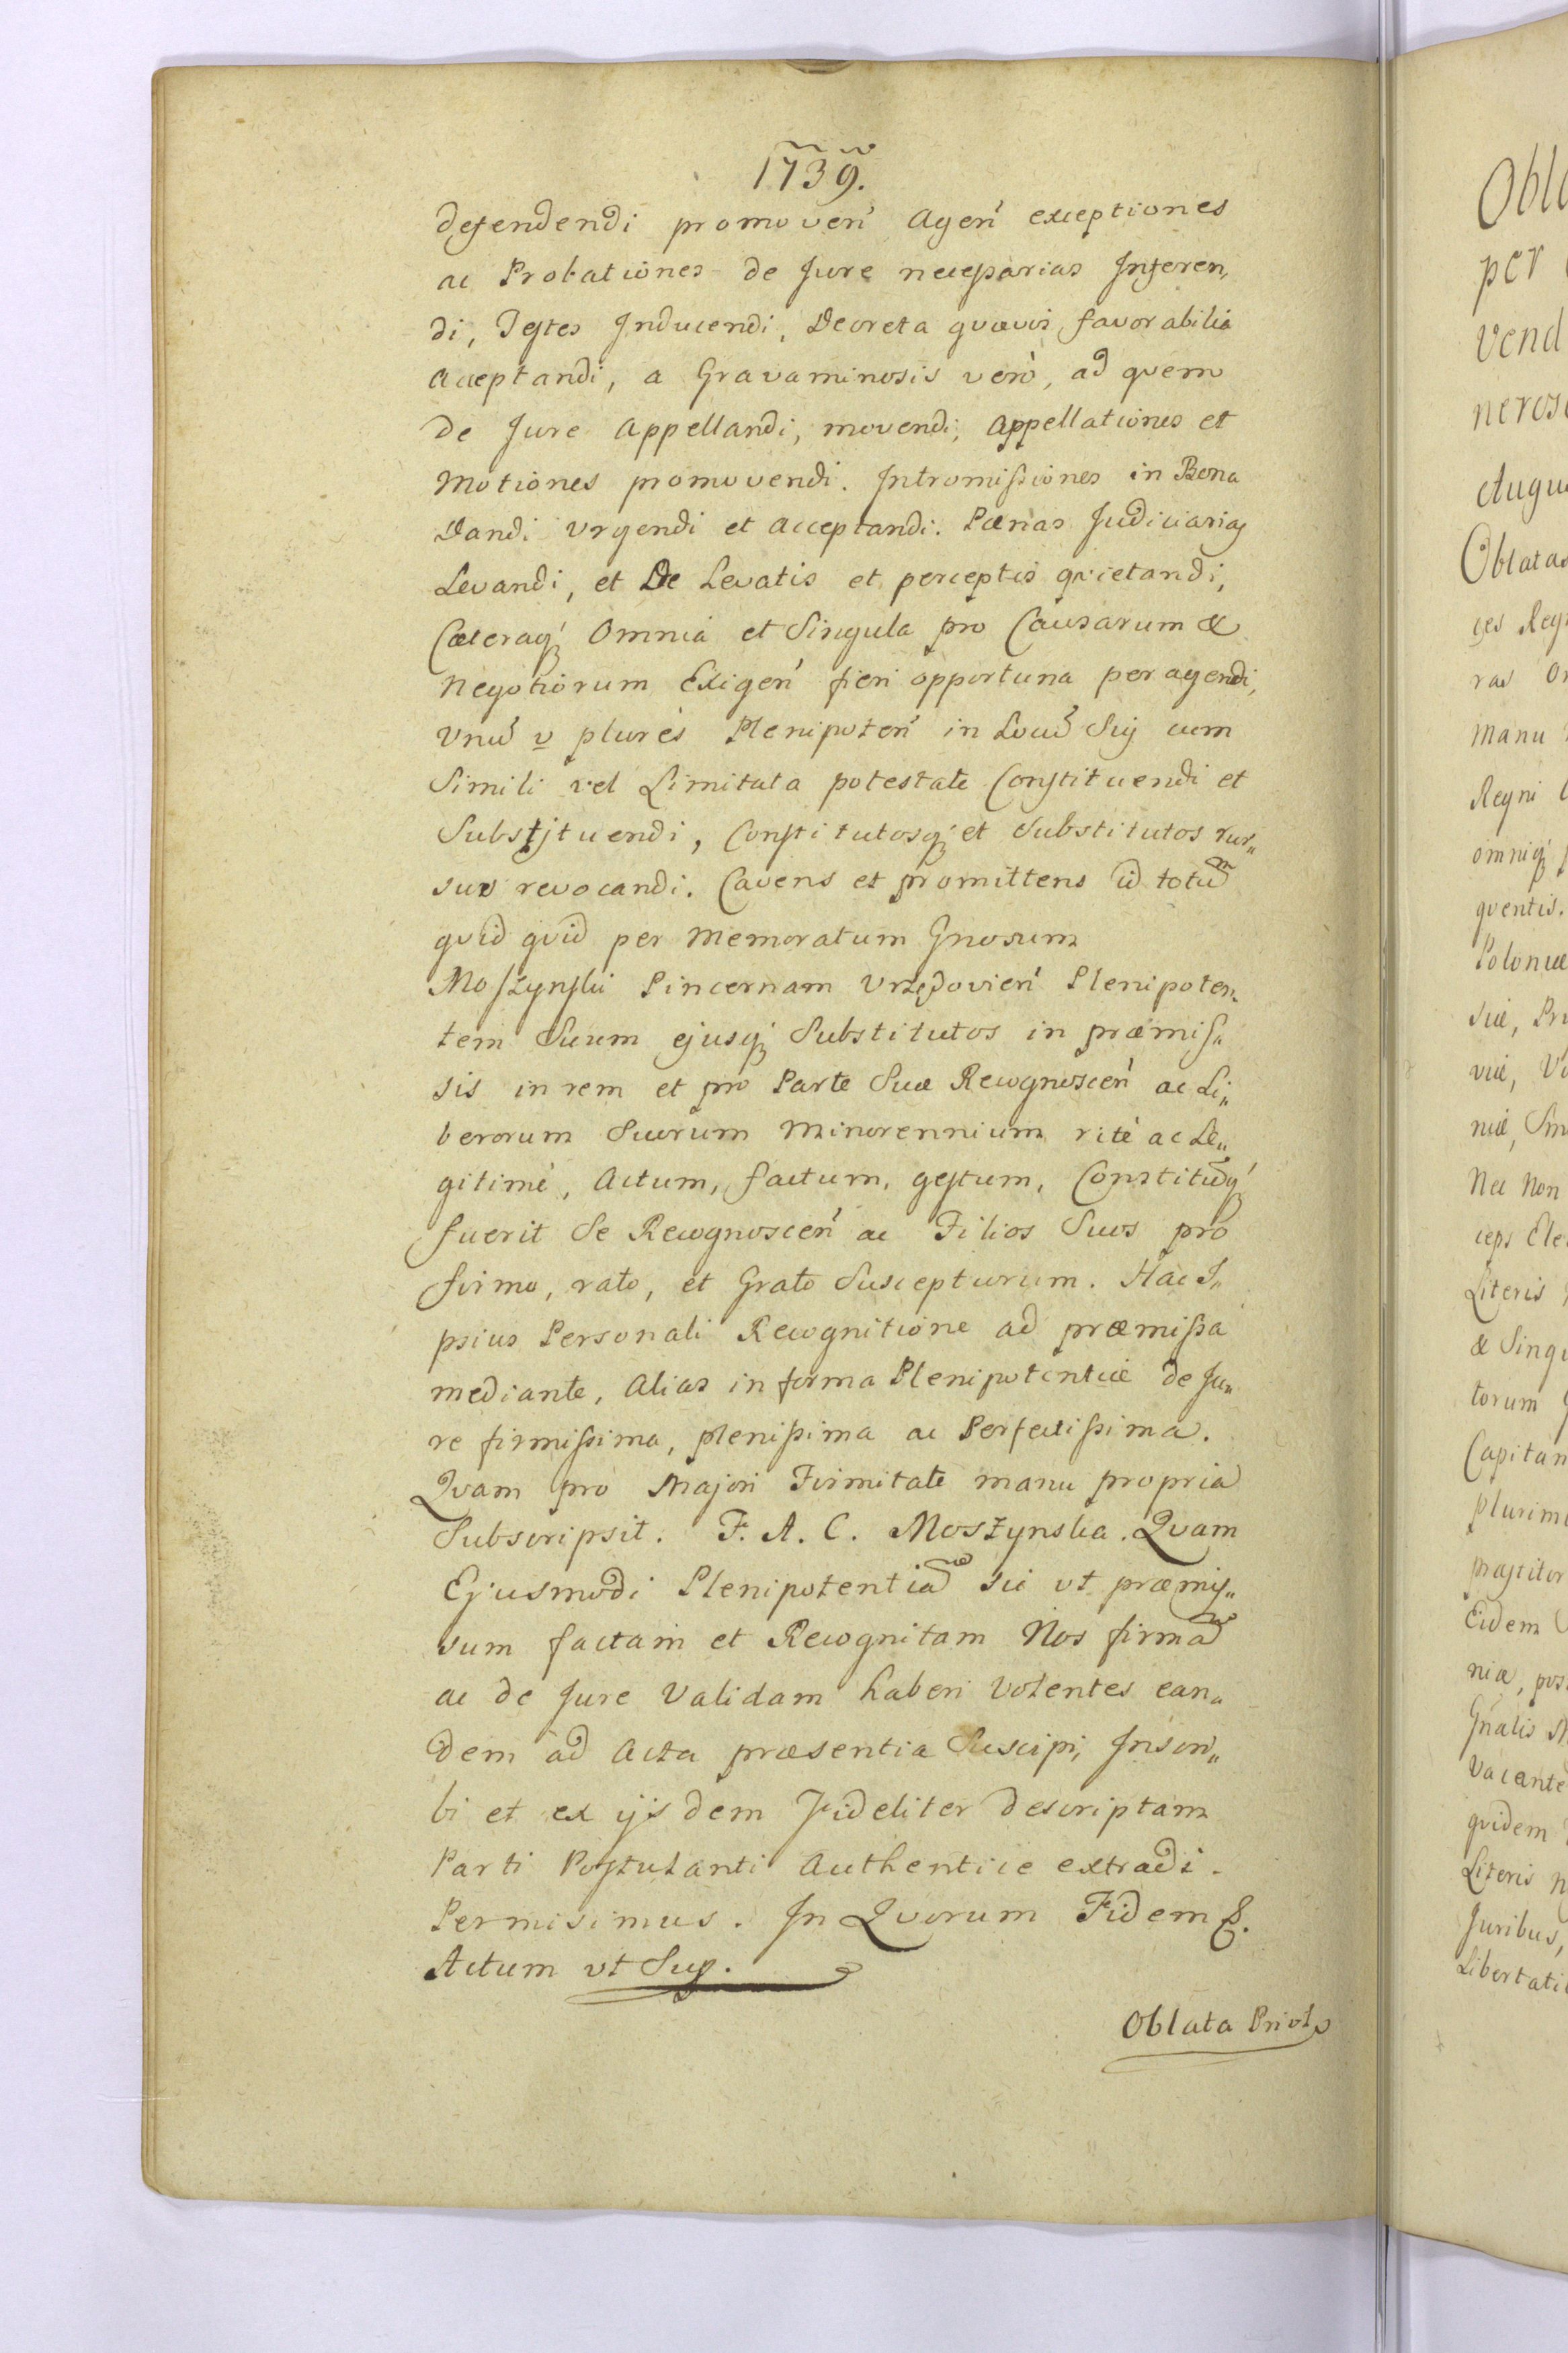 1739.
defendendi promoveń Ageń exceptiones
ac Probationes de Jure necessarias Inferen,
di, Testes Inducendi, Decreta quævis favorabilia
acceptandi, a Gravaminosis verò, ad quem
de Jure Appellandi, movendi, Appellationes et
Motiones promovendi. Intromissiones in Bona
Dandi Urgendi et acceptandi. Pænas Judiciarias
Levandi, et De Levatis et perceptis qvietandi,
Cæteraq́ Omnia et Singula pro Causarum &
Negotiorum Exigeń fieri opportuna peragendi,
Vnū v plures Plenipoteń in Locū Sui cum
Simili vel Limitata potestate Constituendi et
Substituendi, Constitutosq́ et Substitutos rur„
sus revocandi. Cavens et promittens id totū
qvid qvid per Memoratum Gnosum
Moszynski Pincernam Vrzędovień Plenipoten„
tem Suum ejusq́ Substitutos in præmis„
sis in rem et pro Parte Suæ Recognosceń ac Li„
berorum Suorum Minorennium ritè ac Le„
gitimè, Actum, factum, gestum, Constitūq́
fuerit Se Recognosceń ac Filios Suos pro
firmo, rato, et Grato Suscepturum. Hac I„
psius Personali Recognitione ad præmissa
mediante, Alias in forma Plenipotentiæ de Ju„
re firmissima, plenissima ac Perfectissima.
Qvam pro Majori Firmitate manu propria
Subscripsit. F. A. C. Moszynska. Qvam
Ejusmodi Plenipotentiā sic ut præmis„
sum factam et Recognitam Nos firmā
ac de Jure Validam haberi Volentes ean„
dem ad Acta præsentia Suscipi, Inscri„
bi et ex ijsdem Fideliter descriptam
Parti Postulanti Authentice extradi
Permisimus. In Qvorum Fidem &.
Actum ut Sup.
Oblata Privil
Obl
per
vend
neros
Augu
Oblatas
ces Reg
ras
Manu
Regni
omniq́
qventis.
Poloniæ
siæ, Pr
viæ, Vo
niæ, Sm
Nec Non
ceps Ele
Literis
& Singu
torum
Capitan
plurim
magister
Eidem
nia, pos
Gnalis
Vacante
qvidem
Literis N
Juribus,
Libertati